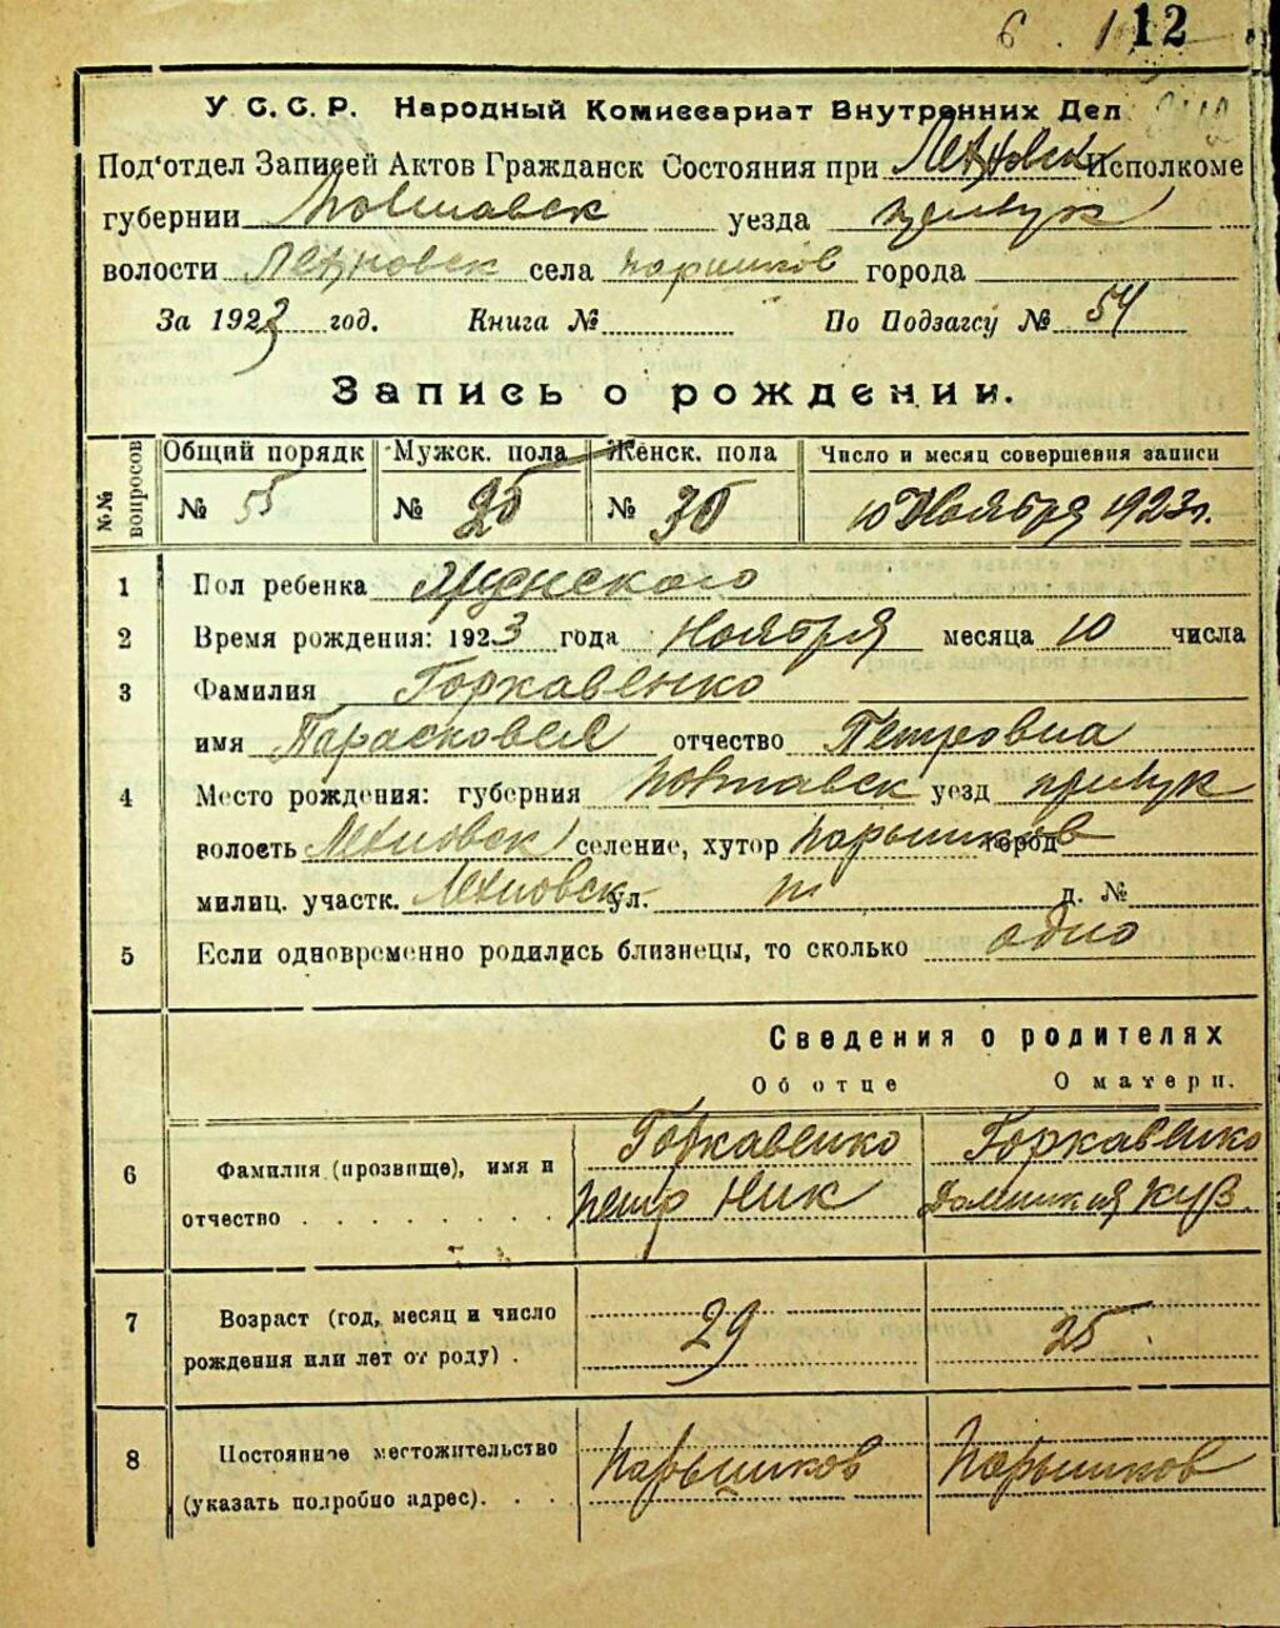 12
У С. С. Р. Народный Комиссариат Внутренних Дел
Под'отдел Записей Актов Гражданск Состояния при Лехновск Исполкоме
губернии Повтавск уезда Прилук
волости Лехновск села Парышков города
За 1923 год. Книга № По Подзагсу № 54
Запись о рождении.
№№ вопросов Общий порядк Мужск. пола Женск. пола Число и месяц совершения записи
№ 55 № 25 № 30 10 Ноября 1923 г.
1 Пол ребенка
2 Время рождения: 1923 года Ноября месяца 10 числа
3 Фамилия Горкавенко
имя Парасковея отчество Петровна
4 Место рождения: губерния Повтавск уезд прилук
волость Лехновск селение, хутор Парышков город
милиц. участк. Лехновск ул. д. №
5 Если одновременно родились близнецы, то сколько одно
Сведения о родителях
Об отце О матери.
6 Фамилия (прозвище), имя и Горкавенко Горкавенко
отчество . . . . . . . . Петр Ник Домникия Куз.
7 Возраст (год, месяц и число
рождения или лет от роду) . 29 25
8 Постоянное местожительство Парышков Парышков
(указать подробно адрес). . .